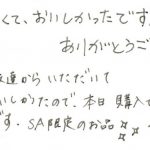 くて、おいしかったです
ありがとうご
友達からいただいて
いしかったので、本日 購入
です。SA限定のお品